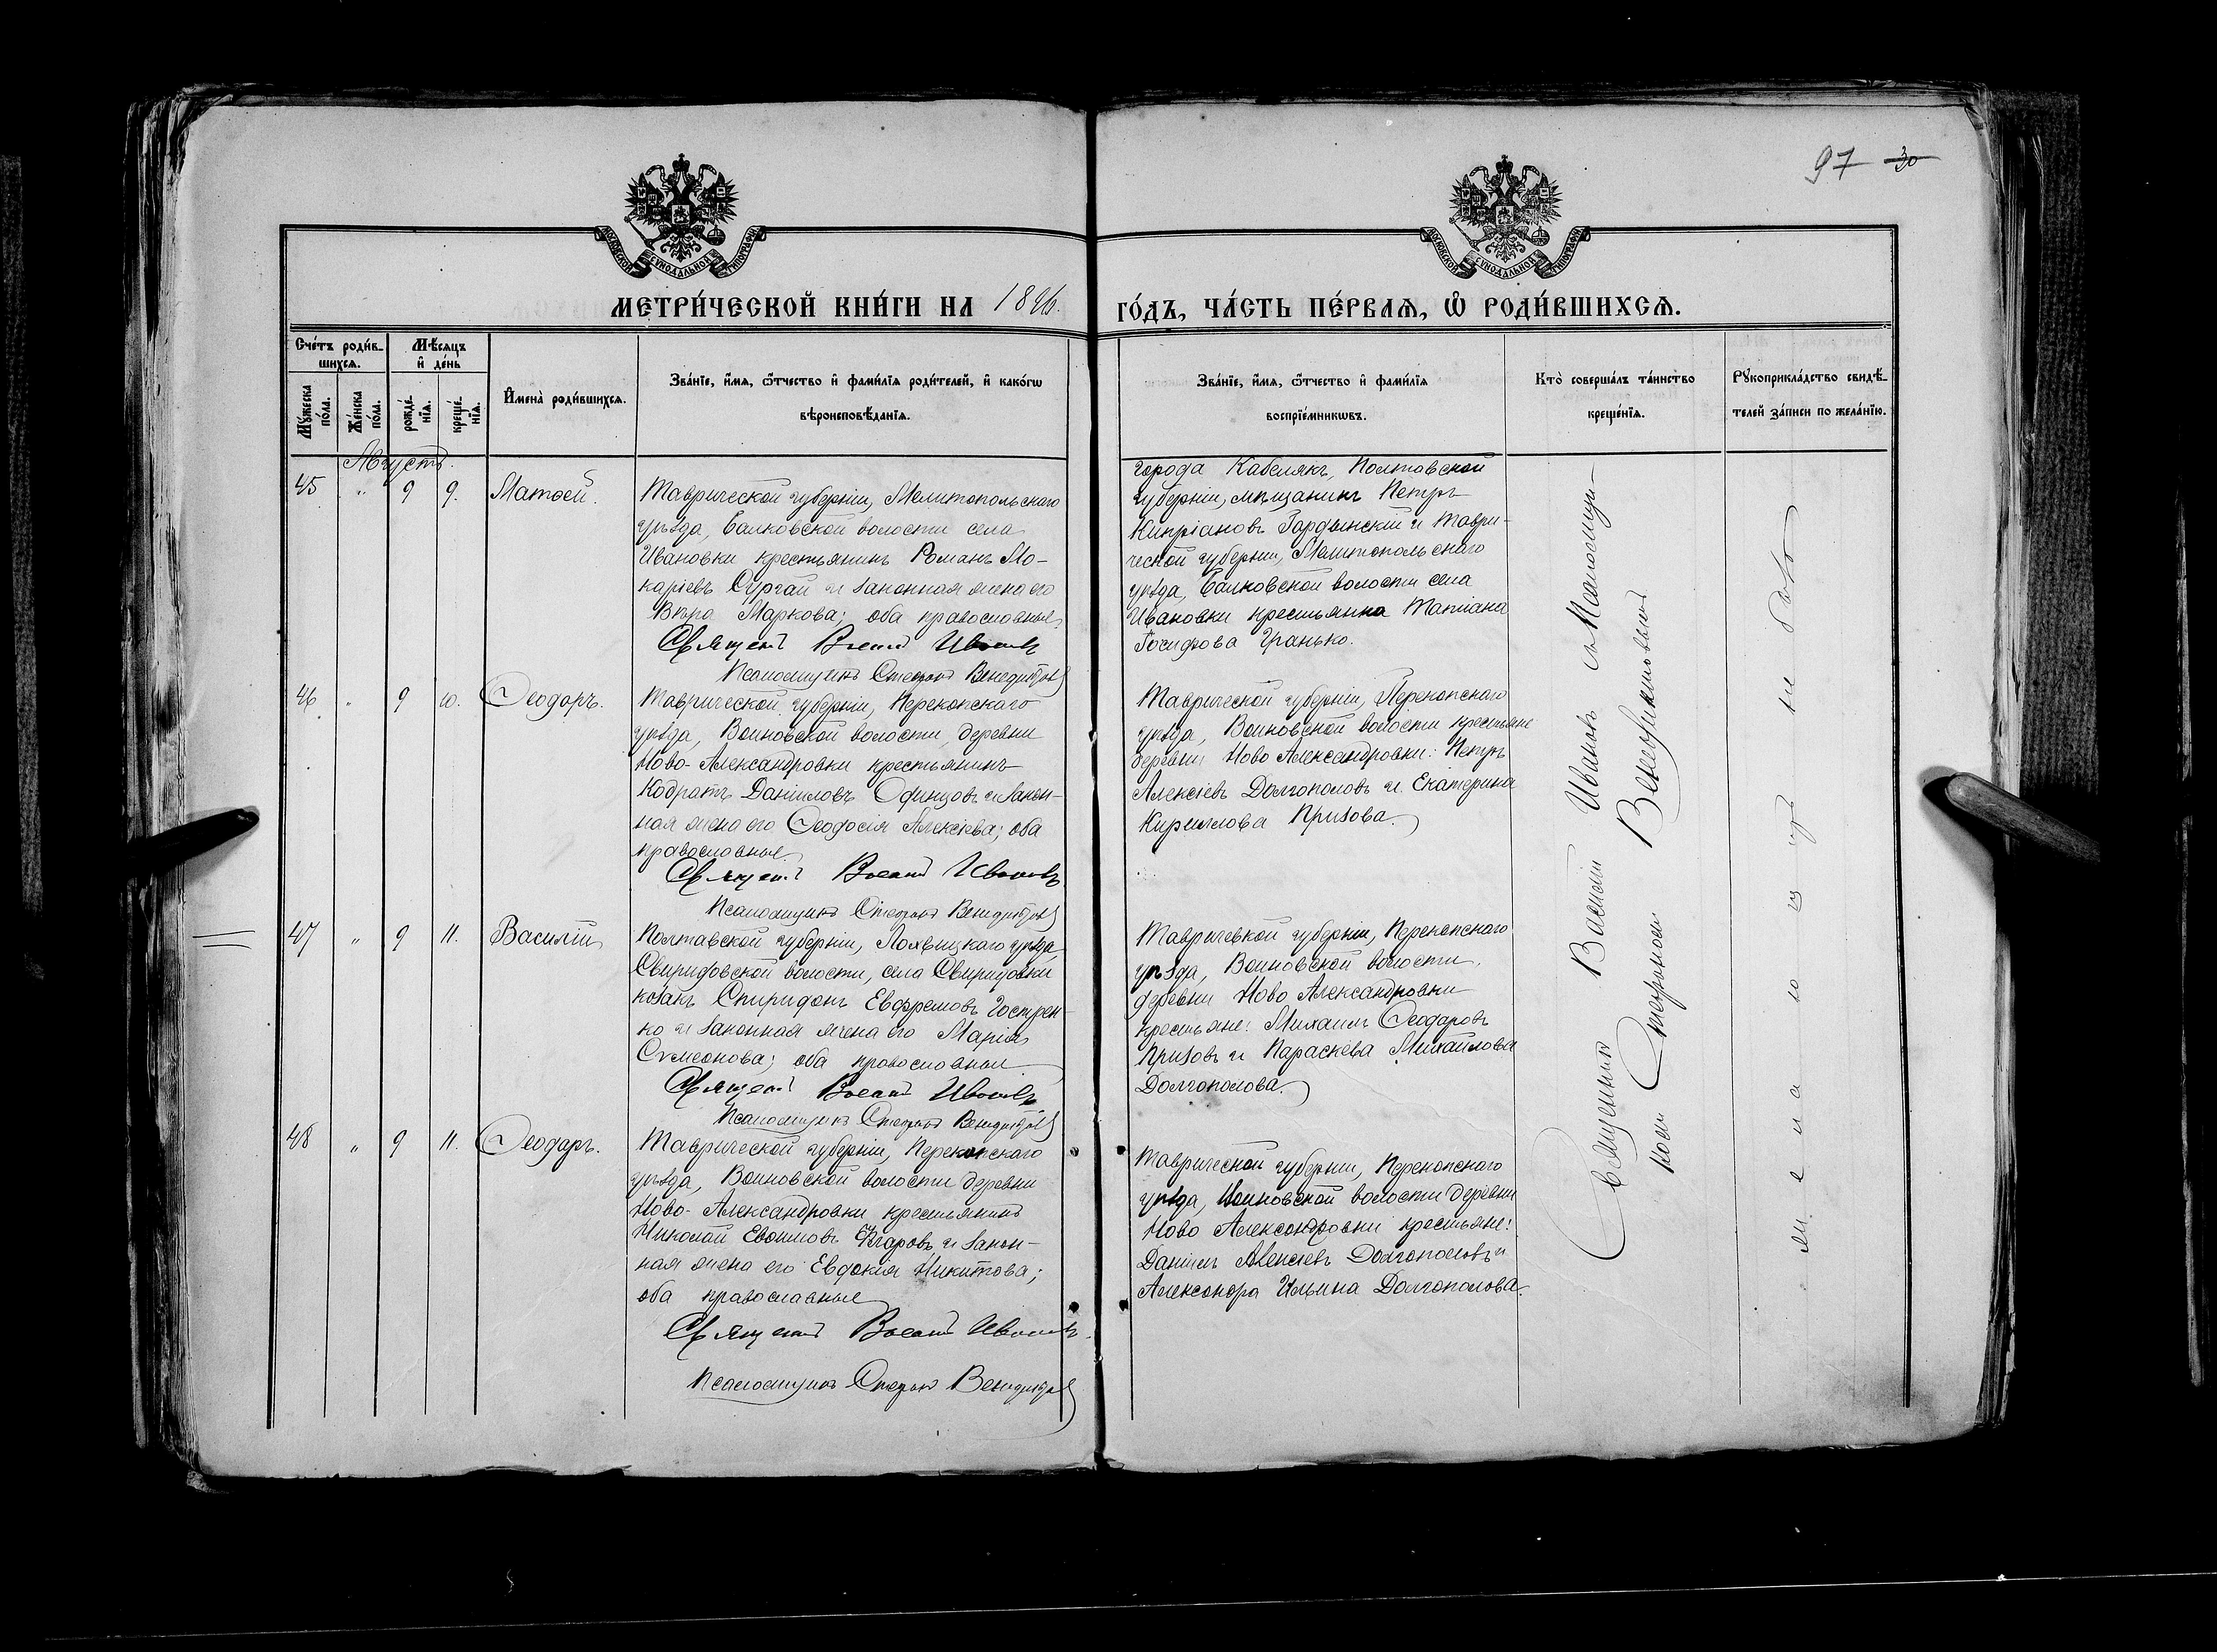 97 30
МОСКОВСКОЙ СѴНОДАЛЬНОЙ ТИПОГРАФІИ
МОСКОВСКОЙ СѴНОДАЛЬНОЙ ТИПОГРАФІИ
МЕТРИ́ЧЕСКОЙ КНИ́ГИ НА 1896.
ГО́ДЪ, ЧА́СТЬ ПЕ́РВАѦ, Ѽ РОДИ́ВШИХСѦ.
Сче́тъ роди́в-
шихсѧ.
Мѣ́сѧцъ
и҆ де́нь
Мꙋ́жеска по́ла.
Же́нска по́ла.
рожде́-нїѧ.
креще́-нїѧ.
И҆мена̀ роди́вшихсѧ.
Зва́нїе, и҆́мѧ, ѻ҆́тчество и҆ фами́лїѧ роди́телей, и҆ како́гѡ
вѣроисповѣ́данїѧ.
Зва́нїе, и҆́мѧ, ѻ҆́тчество и҆ фами́лїѧ
воспрїе́мникѡвъ.
Кто̀ соверша́лъ та́инство
креще́нїѧ.
Рꙋкоприкла́дство свидѣ́-
телей за́писи по жела́нїю.
Августъ.
45 " 9 9. Матѳей.
Таврической губерніи, Мелитопольскаго
уѣзда, Балковской волости села
Ивановки крестьянинъ Романъ Ма-
каріевъ Сургай и законная жена его
Вѣра Маркова; оба православные.
Священ. Васил Иванов
Псаломщикъ Стефанъ Венедиктовъ
города Кабелякъ, Полтавской
губерніи, мѣщанинъ Петръ
Кипріановъ Гордынскій и Таври-
ческой губерніи, Мелитопольскаго
уѣзда, Балковской волости села
Ивановки крестьянка Татіана
Іосифова Гранько.
46. " 9 10. Ѳеодоръ.
Таврической губерніи, Перекопскаго
уѣзда, Воиновской волости, деревни
Ново-Александровки крестьянинъ
Кодратъ Даніиловъ Одинцовъ и закон-
ная жена его Ѳеодосія Алексѣева; оба
православные.
Священ. Васил Иванов
Псаломщикъ Стефанъ Венедиктовъ
Таврической губерніи, Перекопскаго
уѣзда, Воиновской волости крестьяне
деревни Ново Александровки: Петръ
Алексіевъ Долгополовъ и Екатерина
Кириллова Призова.
47 " 9 11. Василій
Полтавской губерніи, Лохвицкаго уѣзда,
Свиридовской волости, села Свиридовки
козакъ Спиридонъ Евфремовъ Гострен-
ко и законная жена его Марія
Сѵмеонова; оба православные.
Священ. Васил Иванов
Псаломщикъ Стефанъ Венедиктовъ
Таврической губерніи, Перекопскаго
уѣзда, Воиновской волости,
деревни Ново Александровки
крестьяне: Михаилъ Ѳеодоровъ
Призовъ и Параскева Михайлова
Долгополова.
48 " 9 11. Ѳеодоръ.
Таврической губерніи, Перекопскаго
уѣзда, Воиновской волости деревни
Ново-Александровки крестьянинъ
Николай Евѳимовъ и закон-
ная жена его Евдокія Никитова;
оба православные
Священ. Васил Иванов
Псаломщикъ Стефанъ Венедиктовъ
Таврической губерніи, Перекопскаго
уѣзда, Воиновской волости деревни
Ново Александровки крестьяне:
Даніилъ Алексіевъ Долгополовъ и
Александра Ильина Долгополова.
Священник Василій Ивановъ съ Псаломщи-
ком Стефаном Венедиктовым